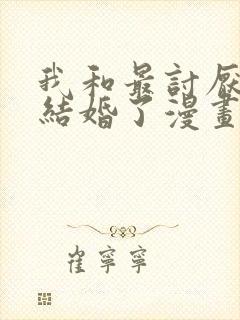 我和最討厭
結婚了漫畫
崔寧寧